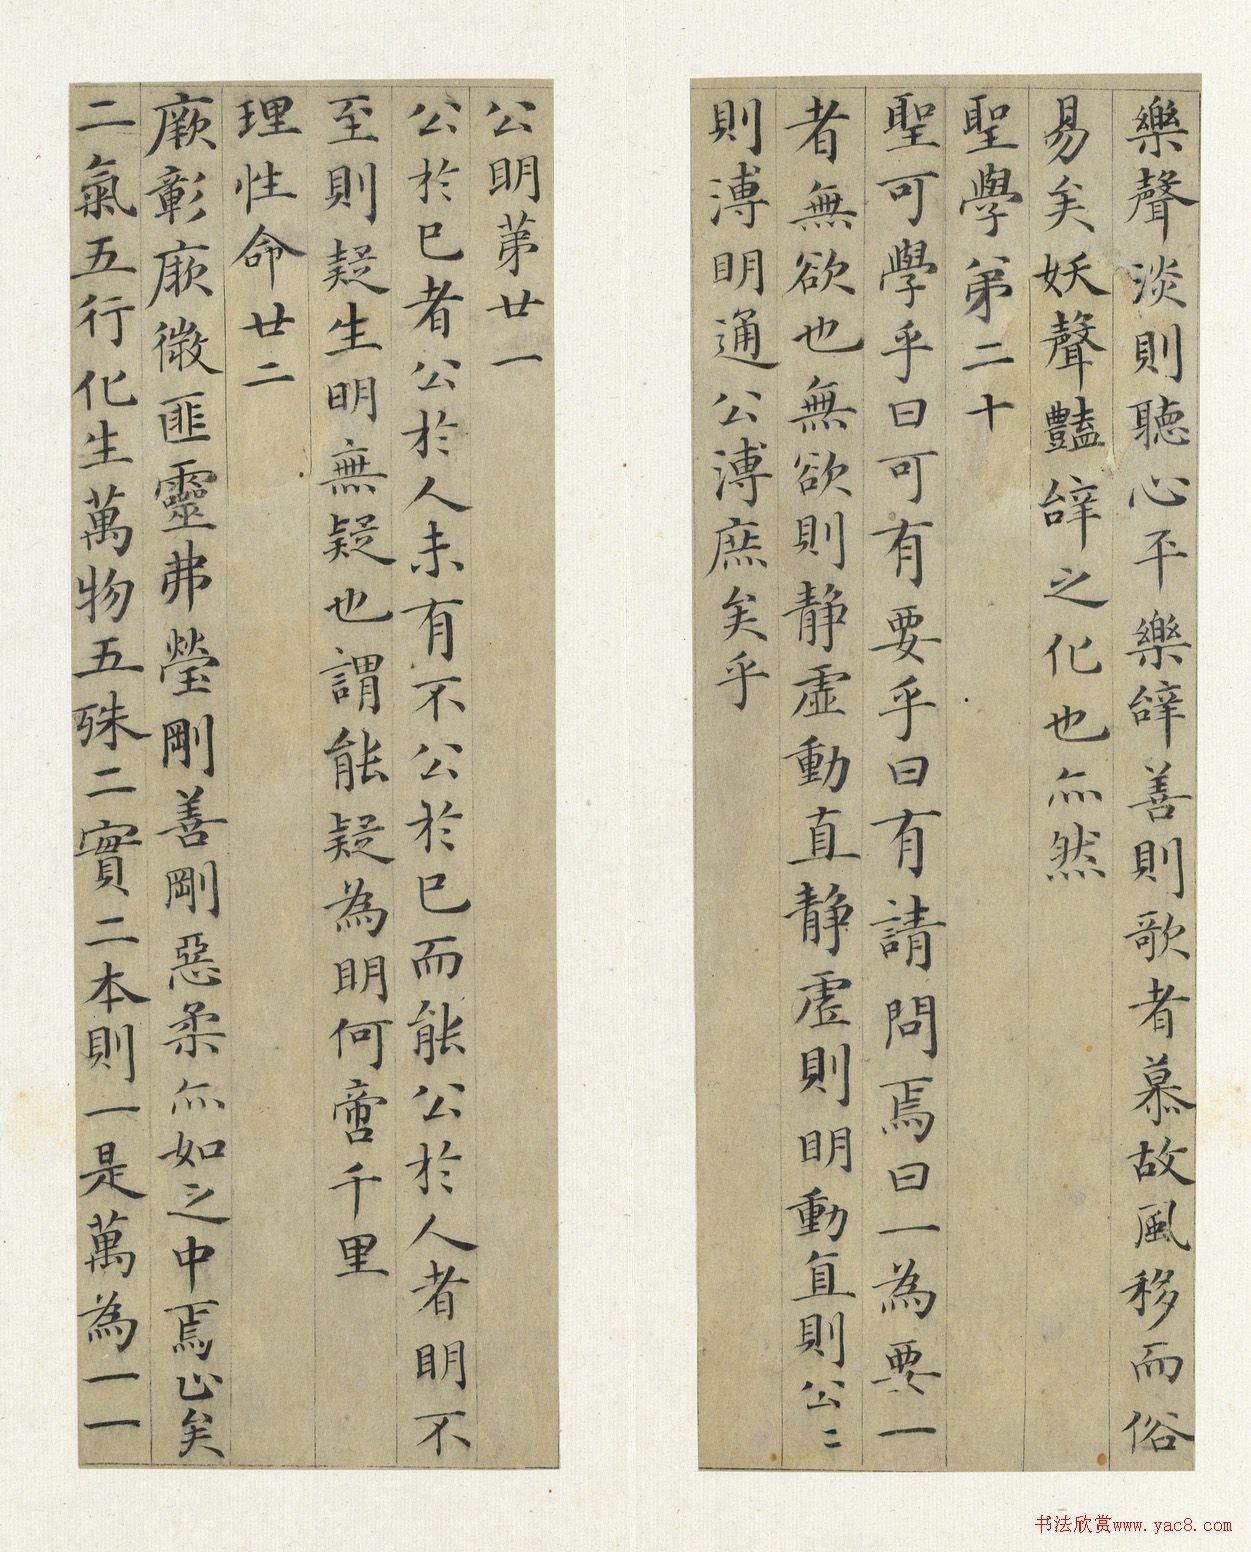 樂聲淡則聽心平樂辭善則歌者慕故風移而俗
易矣妖聲豔辭之化也亦然
聖學第二十
聖可學乎曰可有要乎曰有請問焉曰一為要一
者無欲也無欲則静虛動直静虛則明動直則公二
則溥明通公溥庶矣乎
公明第廿一
公於已者公於人未有不公於已而能公於人者明不
至則疑生明無疑也謂能疑為明何啻千里
理性命廿二
厥彰厥微匪靈弗瑩剛善剛惡柔亦如之中焉止矣
二氣五行化生萬物五殊二實二本則一是萬為一一
书法欣赏www.yac8.com